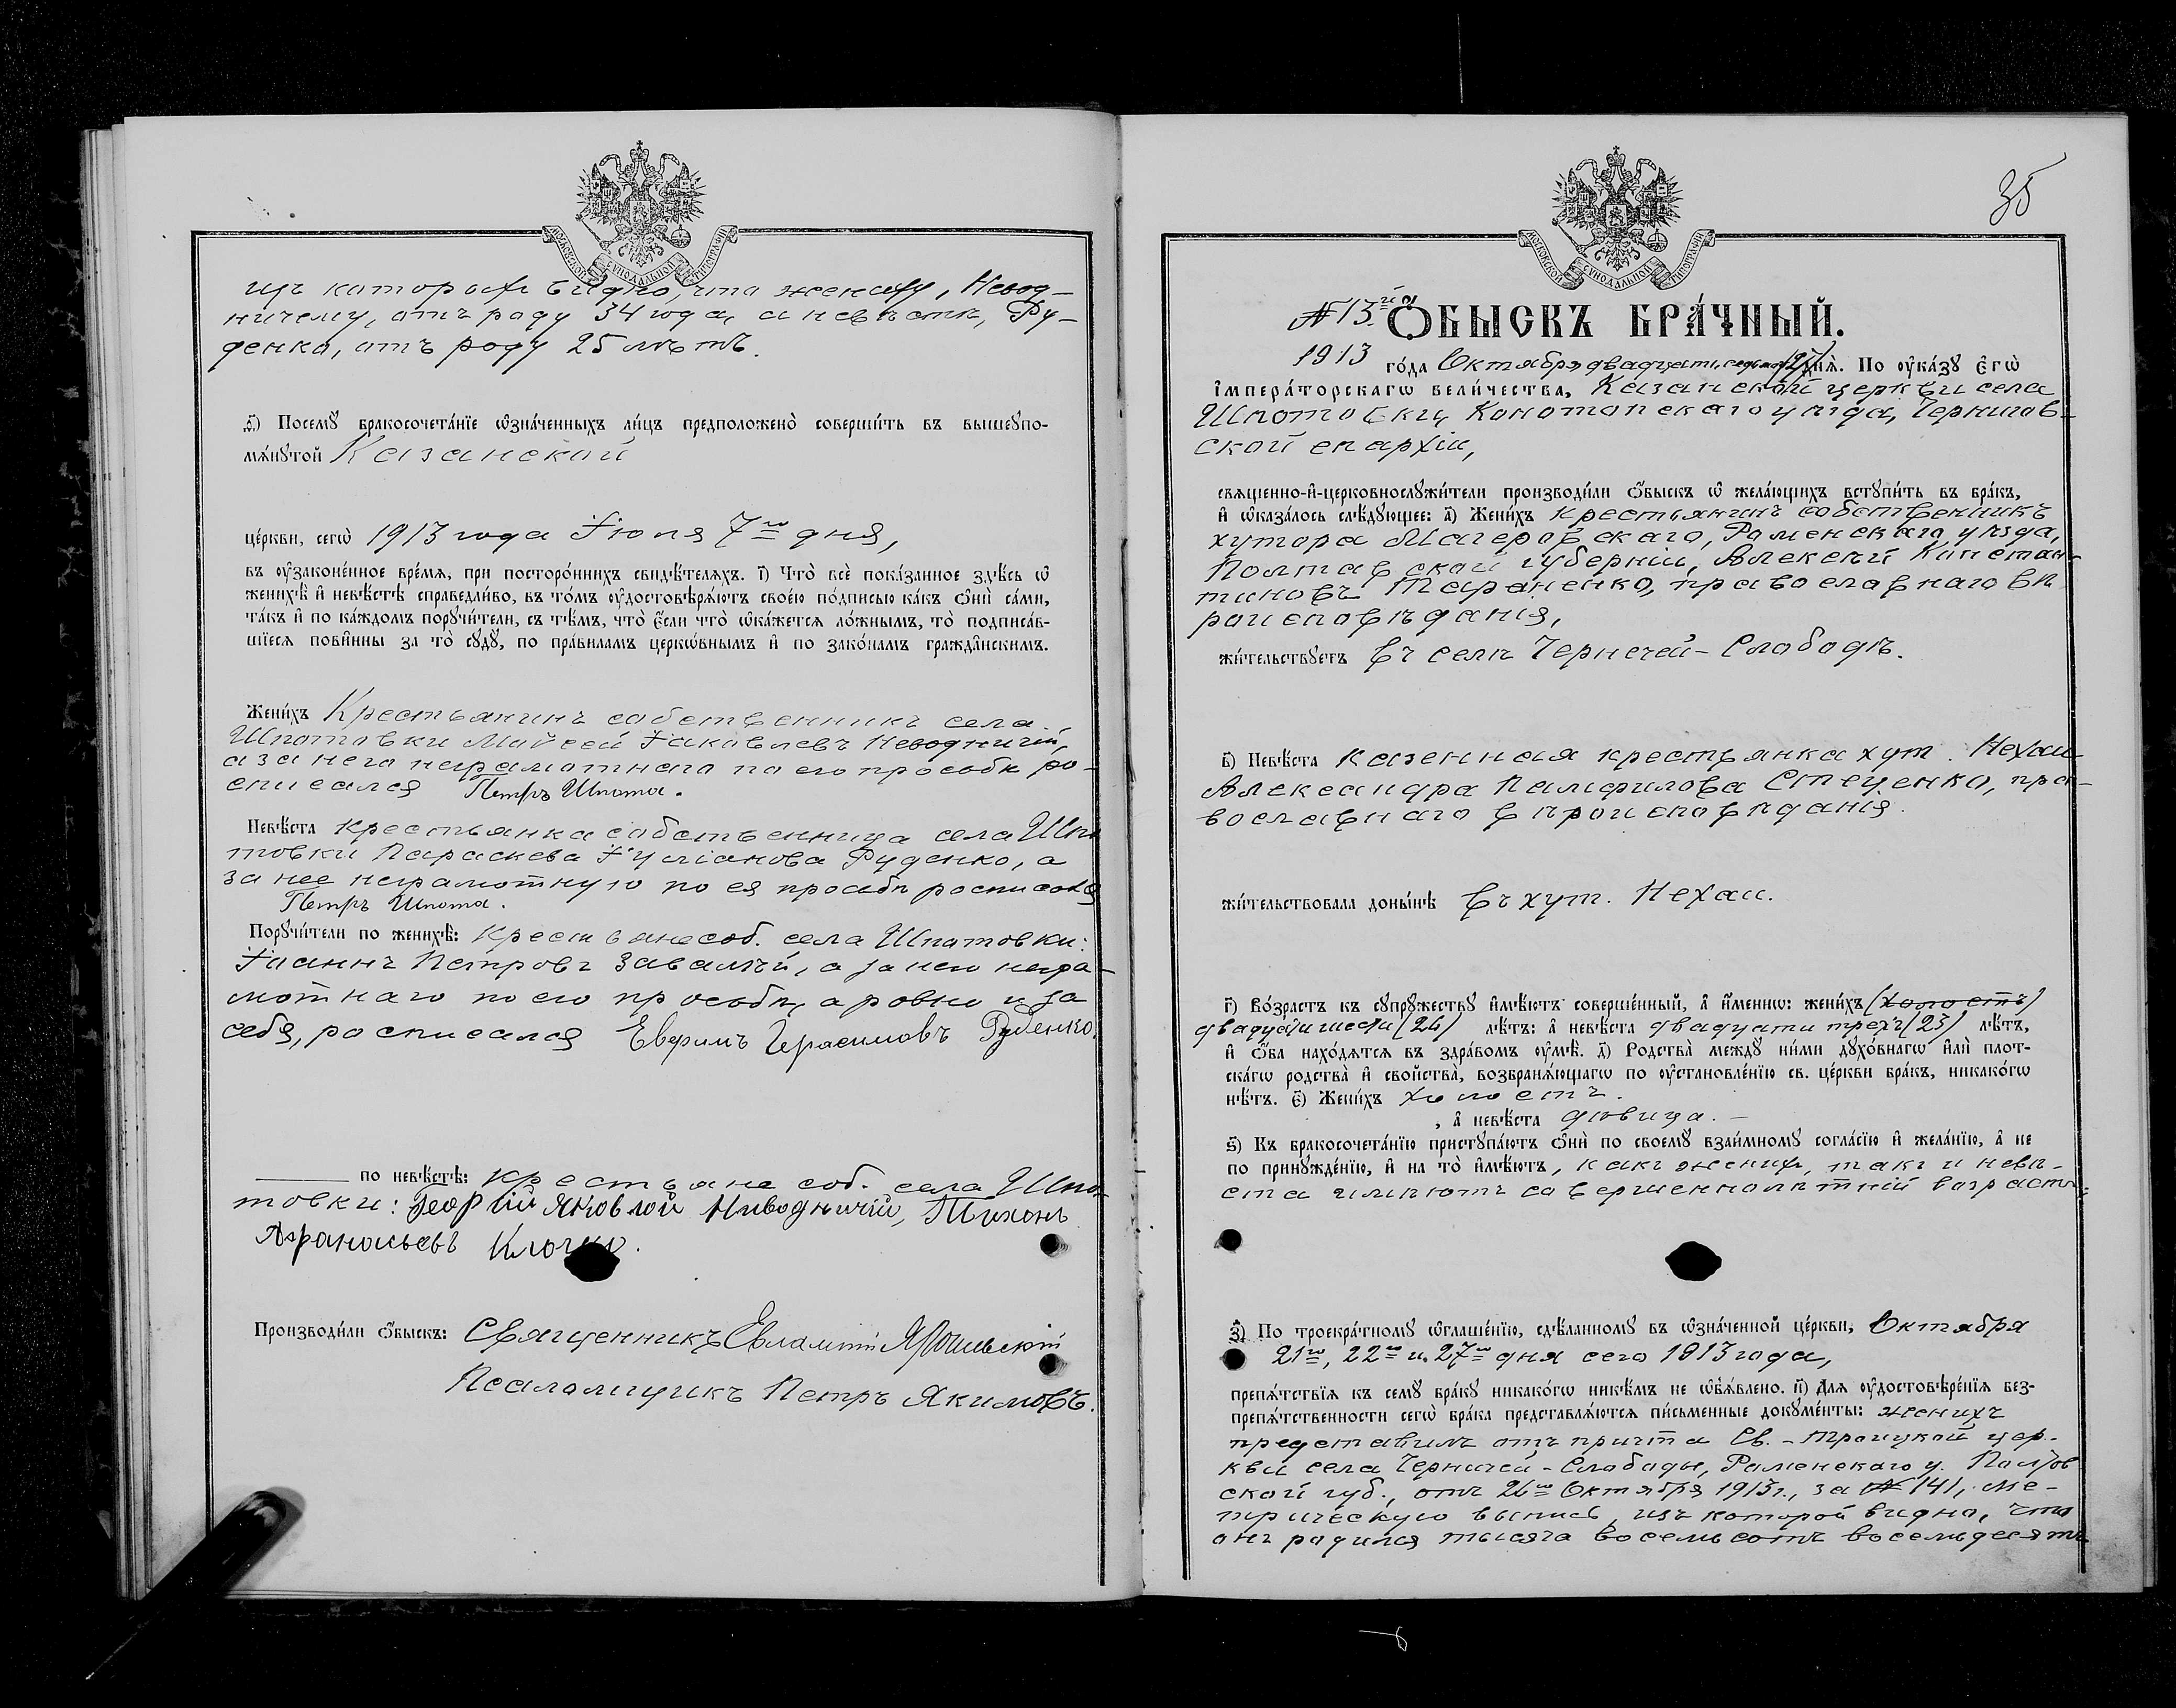 МОСКОВСКОЙ СѴНОДАЛЬНОЙ ТИПОГРАФІИ
изъ которыхъ видно, что жениху, Невод-
ничему, отъ роду 34 года, а невѣстѣ, Ру-
денко, отъ роду 25 лѣтъ.
д҃) Посемꙋ̀ бракосочета́нїе ѡ҆зна́ченныхъ ли́цъ предположено̀ соверши́ть въ вышеꙋпо-
мѧ́нꙋтой Казанской
це́ркви, сегѡ̀ 1913 года Іюля 7го дня,
въ ᲂу҆зако́ненное вре́мѧ, при посторо́ннихъ свидѣ́телѧхъ. і҃) Что̀ всѐ пока́занное здѣ́сь ѡ҆
женихѣ̀ и҆ невѣ́стѣ справедли́во, въ то́мъ ᲂу҆достовѣрѧ́ютъ свое́ю по́дписью ка́къ ѻ҆нѝ са́ми,
та́къ и҆ по ка́ждомъ порꙋчи́тели, съ тѣ́мъ, что̀ є҆́сли что̀ ѡ҆ка́жетсѧ ло́жнымъ, то̀ подписа́в-
шїесѧ пови́нны за то̀ сꙋдꙋ̀, по пра́виламъ церко́внымъ и҆ по зако́намъ гражда́нскимъ.
Жени́хъ Крестьянинъ собственникъ села
Шпотовки Моѵсей Іаковлевъ Неводничій,
а за него неграмотнаго по его просьбѣ ро-
списался Петръ Шпота.
Невѣ́ста крестьянка собственница села Шпо
товки Параскева Іуліанова Руденко, а
за нее неграмотную по ея просьбѣ росписался
Петръ Шпота.
Порꙋчи́тели по женихѣ̀: крестьяне соб. села Шпотовки:
Іоаннъ Петровъ Завалѣй, а за него негра-
мотнаго по его просьбѣ, а ровно и за
себя, росписался Евфимъ Герасимовъ Руденко.
по невѣ́стѣ: крестьяне соб. села Шпо-
товки: Георгій Яковлой Ниводничій, Тихонъ
Афанасьевъ Клочко.
Производи́ли ѻ҆́быскъ: Священникъ Евлампій
Псаломщикъ Петръ Якимовъ.
35
МОСКОВСКОЙ СѴНОДАЛЬНОЙ ТИПОГРАФІИ
№ 13.й Ѻ҆́БЫСКЪ БРА́ЧНЫЙ.
1913 го́да Октября двадцать седьмого (27) днѧ̀. По ᲂу҆ка́зꙋ є҆гѡ̀
і҆мпера́торскагѡ вели́чества, Казанской церкви села
Шпотовки, Конотопскаго уѣзда, Чернигов-
ской епархіи,
свѧще́нно-и҆-церковнослꙋжи́тели производи́ли ѻ҆́быскъ ѡ҆ жела́ющихъ встꙋпи́ть въ бра́къ,
и҆ ѡ҆каза́лось слѣ́дꙋющее: а҃) Жени́хъ крестьянинъ собственникъ
хутора Магеровскаго, Роменскаго уѣзда,
Полтавской губерніи, Алексѣй Констан-
тиновъ Тараненко, православнаго вѣ
роисповѣданія,
жи́тельствꙋетъ въ селѣ Чернечей-Слободѣ.
в҃) Невѣ́ста казенная крестьянка хут. Нехаи
Александра Памфилова Стеценко, пра-
вославнаго вѣроисповѣданія.
жи́тельствовала доны́нѣ въ хут. Нехаи.
г҃) Во́зрастъ къ сꙋпрꙋ́жествꙋ и҆мѣ́ютъ соверше́нный, а҆ и҆́меннѡ: жени́хъ (холостъ)
двадцати шести (26) лѣ́тъ: а҆ невѣ́ста двадцати трехъ (23) лѣ́тъ,
и҆ ѻ҆́ба нахо́дѧтсѧ въ здра́вомъ ᲂу҆мѣ̀. д҃) Родства̀ междꙋ̀ ни́ми дꙋхо́внагѡ и҆лѝ плот-
ска́гѡ родства̀ и҆ свойства̀, возбранѧ́ющагѡ по ᲂу҆становле́нїю св. це́ркви бра́къ, никако́гѡ
нѣ́тъ. є҃) Жени́хъ холостъ.
, а҆ невѣ́ста дѣвица.
ѕ҃) Къ бракосочета́нїю пристꙋпа́ютъ ѻ҆нѝ по своемꙋ̀ взаи́мномꙋ согла́сїю и҆ жела́нїю, а҆ не
по принꙋжде́нїю, и҆ на то̀ и҆мѣ́ютъ, какъ женихъ, такъ и невѣ-
ста имѣютъ совершеннолѣтній возрастъ.
з҃) По троекра́тномꙋ ѡ҆глаше́нїю, сдѣ́ланномꙋ въ ѡ҆зна́ченной це́ркви, Октября
21го, 22го и 27го дня сего 1913 года,
препѧ́тствїѧ къ семꙋ̀ бра́кꙋ никако́гѡ никѣ́мъ не ѡ҆б̾ѧ́влено. и҃) Длѧ ᲂу҆достовѣре́нїѧ без-
препѧ́тственности сегѡ̀ бра́ка представлѧ́ютсѧ пи́сьменные докꙋме́нты: женихъ
представилъ отъ причта Св.-Троицкой цер-
кви села Чернечей-Слободы, Роменскаго у. Полтав
ской губ., отъ 26го Октября 1913г., за № 141, ме-
трическую выпись, изъ которой видно, что
онъ родился тысяча восемьсотъ восемьдесятъ